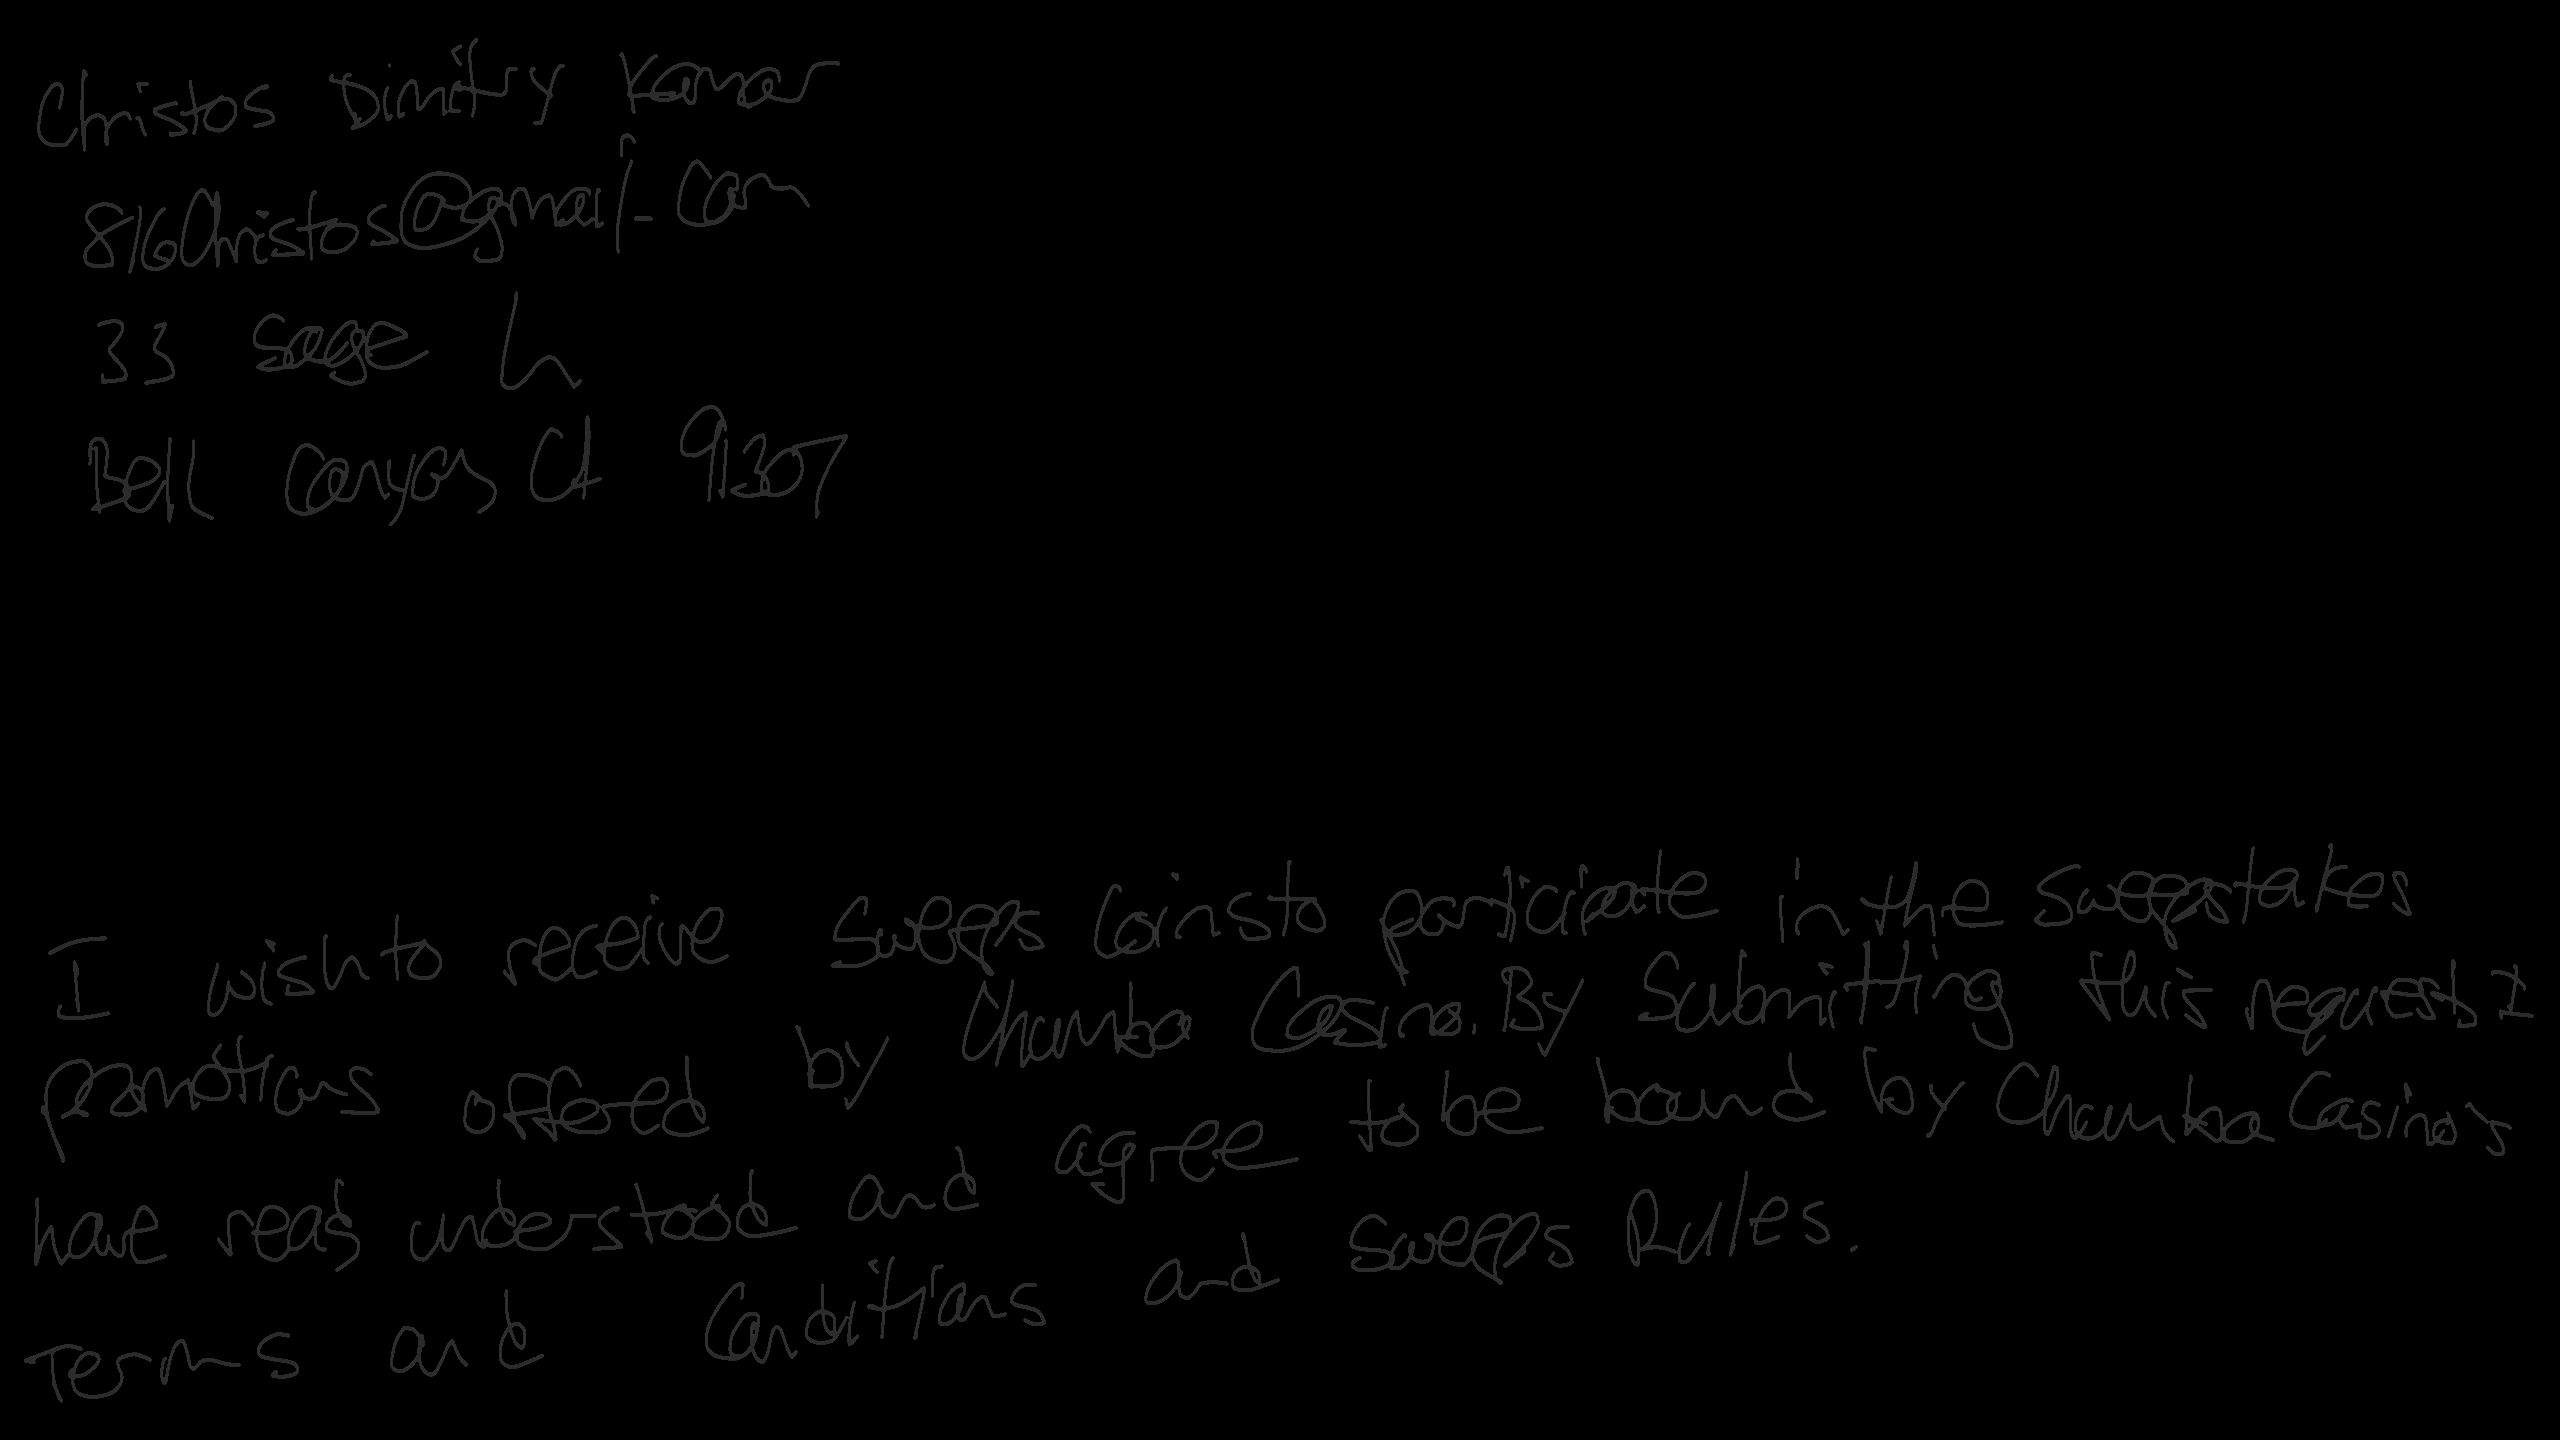 Christos Dimitry Kamar
816Christos@gmail.com
33 Sage Ln
Bell Canyon CA 91307
I wish to receive Sweeps Coins to participate in the sweepstakes
promotions offered by Chumba Casino. By Submitting this request I
have read, understood and agree to be bound by Chumba Casino's
Terms and Conditions and Sweeps Rules.